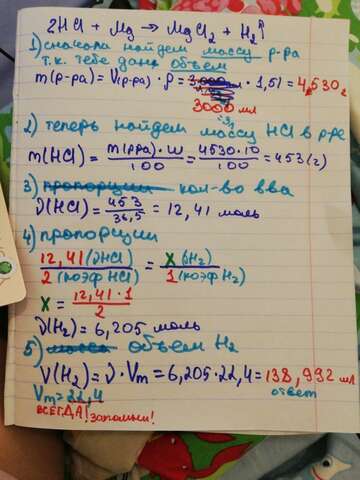 2HCl + Mg → MgCl₂ + H₂↑
1) сначала найдем массу р-ра
т.к. тебе дан объем
m(р-ра) = V(р-ра) · ρ = 3000 · 1,51 = 4,530 г
3000 мл
2) теперь найдем массу HCl в р-ре
m(HCl) = m(рра)·ω/100 = 4530·10/100 = 453 (г)
3) пропорции кол-во вва
ν(HCl) = 453/36,5 = 12,41 моль
4) пропорции
12,41 (νHCl)/2 (коэф HCl) = X (νH₂)/1 (коэф H₂)
X = 12,41·1/2
ν(H₂) = 6,205 моль
5) масса объем H₂
V(H₂) = ν · Vm = 6,205·22,4 = 138,992 мл
Vm = 22,4 ответ
ВСЕГДА! запомни!